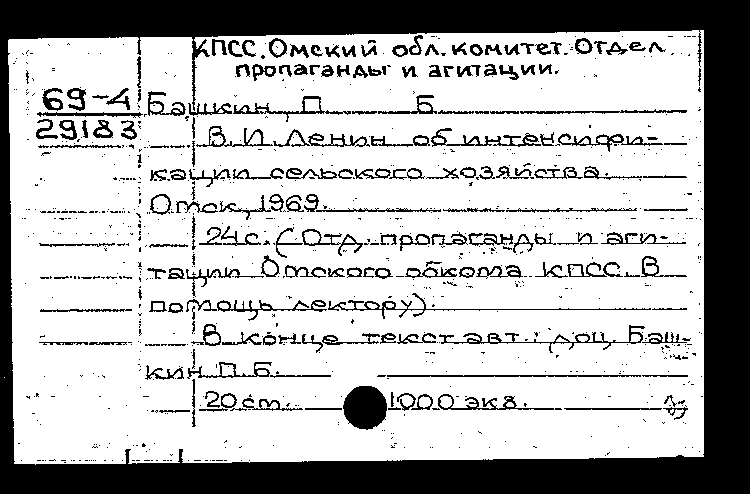 КПСС. Омский обл. комитет. Отдел
пропаганды и агитации.
69-4
29183
Башкин, П Б
В.И. Ленин об интенсифи-
кации сельского хозяйства.
Омск, 1969.
24 с. (Отд. пропаганды и аги-
тации Омского обкома КПСС. В
помощь лектору).
В конце текст авт.: доц. Баш-
кин П.Б.
20 см. 1000 экз.